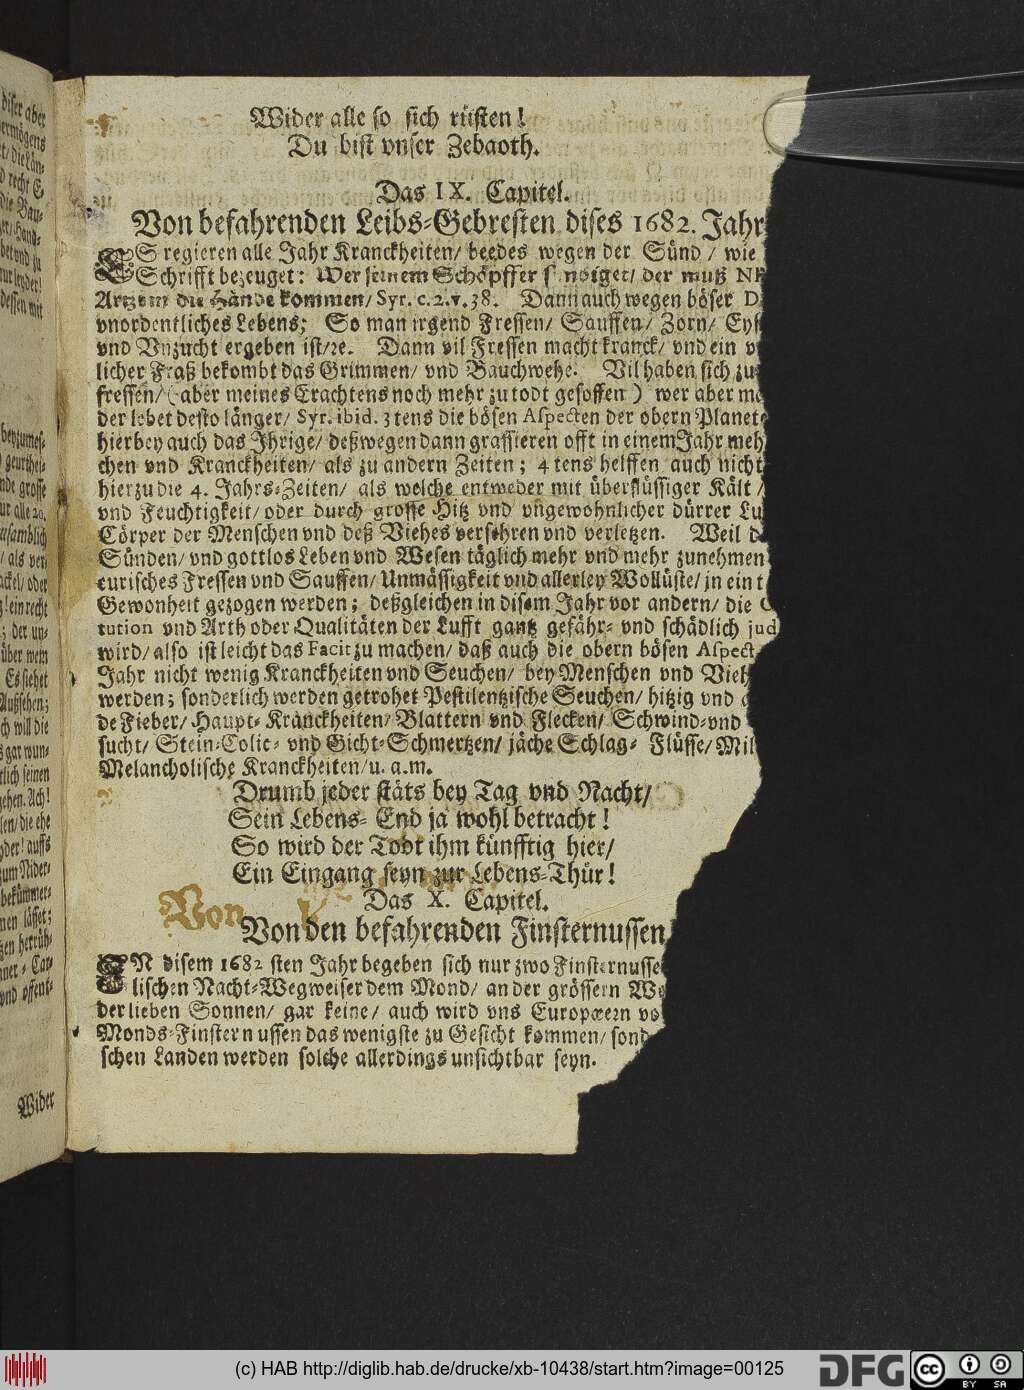 Wider alle so sich rüsten!
Du bist vnser Zebaoth.
Das IX. Capitel.
Von befahrenden Leibs-Gebresten dises 1682. Jahr
ES regieren alle Jahr Kranckheiten/ beedes wegen der Sünd/ wie
Schrifft bezeuget: Wer seinem Schöpffer der muß
die Hände kommen/ Syr. c. 2. v. 38. Dann auch wegen böser
vnordentliches Lebens; So man irgend Fressen/ Sauffen/ Zorn/
vnd Vnzucht ergeben ist/ ꝛc. Dann vil Fressen macht kranck/ vnd ein
licher Fraß bekombt das Grimmen/ vnd Bauchwehe. Vil haben sich zu
fressen/ (aber meines Erachtens noch mehr zu todt gesoffen) wer aber
der lebet desto länger/ Syr. ibid. 3tens die bösen Aspecten der obern Planet
hierbey auch das Jhrige/ deßwegen dann grassieren offt in einem Jahr meh
chen vnd Kranckheiten/ als zu andern Zeiten; 4tens helffen auch nicht
hierzu die 4. Jahrs-Zeiten/ als welche entweder mit überflüssiger Kält/
vnd Feuchtigkeit/ oder durch grosse Hitz vnd vngewohnlicher dürrer Lu
Cörper der Menschen vnd deß Viehes versehren vnd verletzen. Weil
Sünden/ vnd gottlos Leben vnd Wesen täglich mehr vnd mehr zunehmen
curisches Fressen vnd Sauffen/ Unmässigkeit vnd allerley Wollüste/ in ein
Gewonheit gezogen werden; deßgleichen in disem Jahr vor andern/ die
tution vnd Arth oder Qualitäten der Lufft gantz gefähr- vnd schädlich jud
wird/ also ist leicht das Facit zu machen/ daß auch die obern bösen Aspect
Jahr nicht wenig Kranckheiten vnd Seuchen/ bey Menschen vnd Vieh
werden; sonderlich werden getrohet Pestilentzische Seuchen/ hitzig vnd
de Fieber/ Haupt-Kranckheiten/ Blattern vnd Flecken/ Schwind- vnd
sucht/ Stein- Colic- vnd Gicht-Schmertzen/ jäche Schlag- Flüsse/ Mil
Melancholische Kranckheiten/ u. a. m.
Drumb jeder stäts bey Tag vnd Nacht/
Sein Lebens-End ja wohl betracht!
So wird der Todt ihm künfftig hier/
Ein Eingang seyn zur Lebens-Thür!
Das X. Capitel.
Von
Von den befahrenden Finsternussen
JN disem 1682sten Jahr begeben sich nur zwo Finsternusse
lischen Nacht-Wegweiser dem Mond/ an der grössern
der lieben Sonnen/ gar keine/ auch wird vns Europæern
Monds-Finsternussen das wenigste zu Gesicht kommen/ sond
schen Landen werden solche allerdings unsichtbar seyn.
diser aber
ermögens
recht
dessen mit
beyzumes-
geurthei-
nde grosse
ur alle 20.
/ als ver-
ackel/ oder
; der un-
über wem
Es siehet
Außsehen;
ch will die
gar wun-
tlich seinen
ehen. Ach!
len/ die ehe
yder! auffs
zum Nider-
bekümmer-
nen lässet;
vnd offent-
Wider
(c) HAB http://diglib.hab.de/drucke/xb-10438/start.htm?image=00125
DFG
cc
BY SA